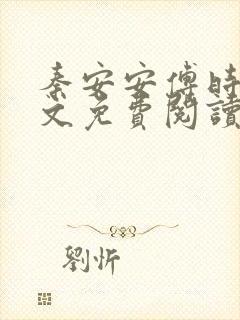 秦安安傅时
文免費閱讀
劉忻